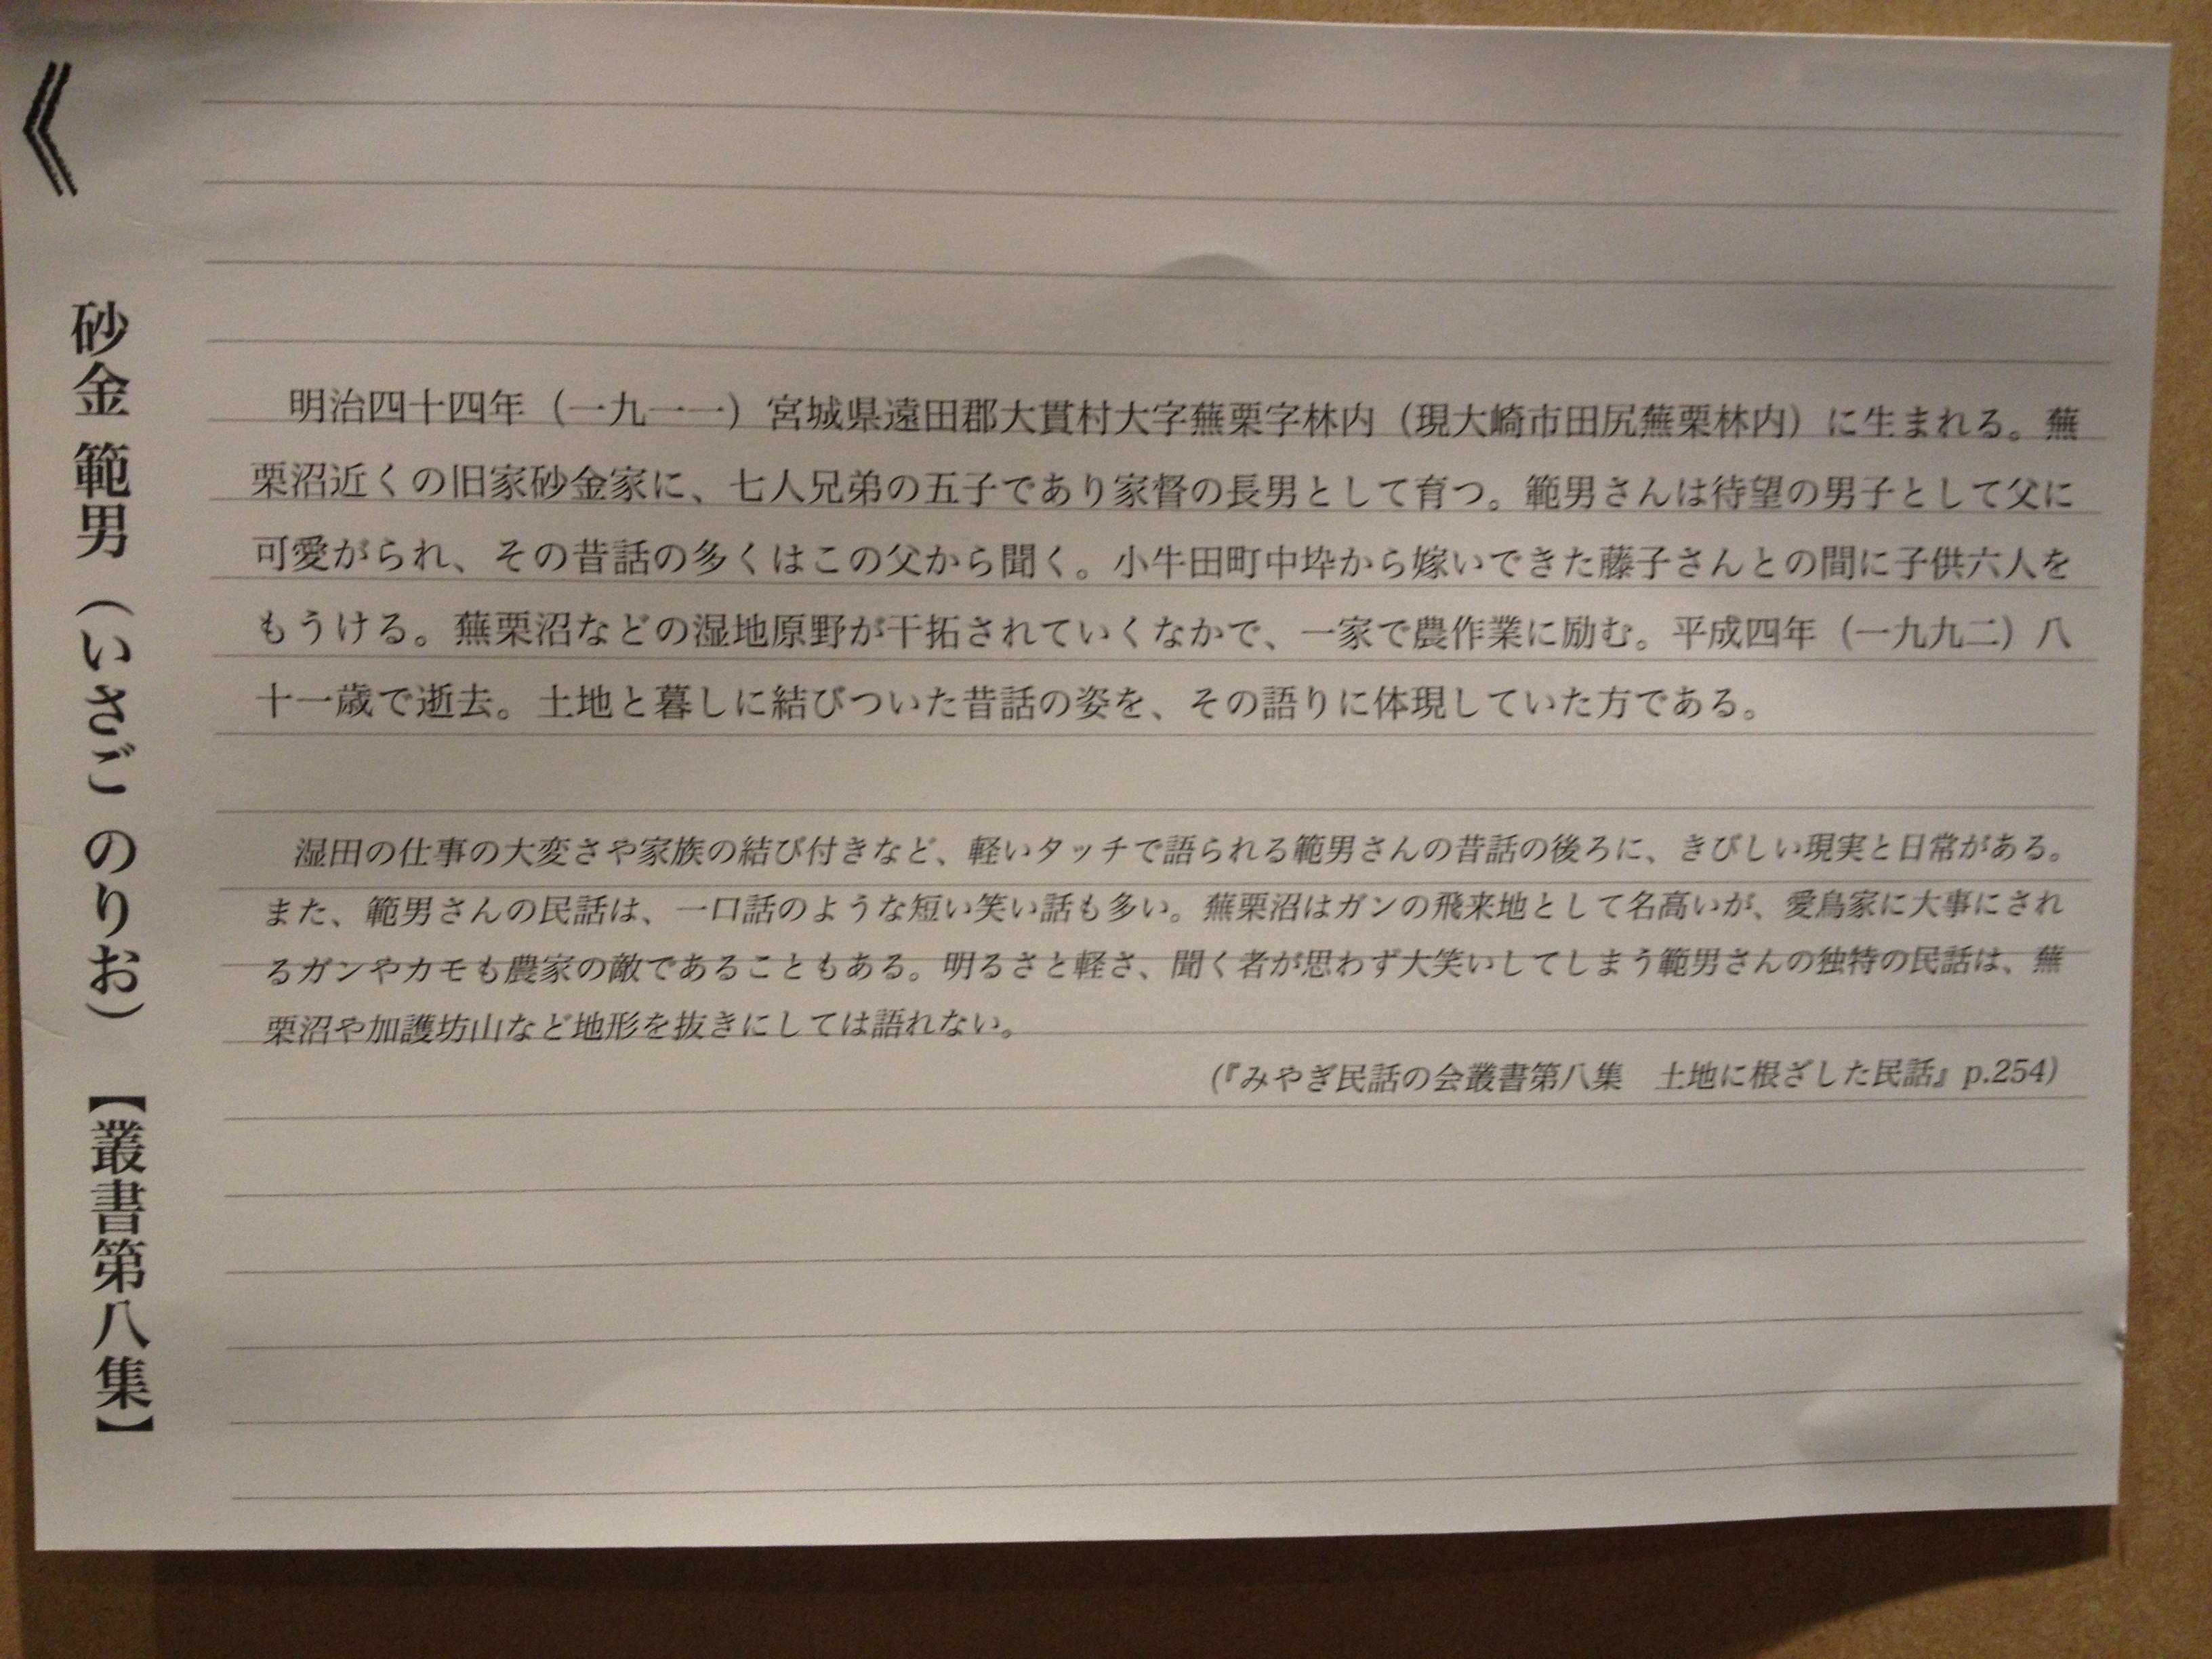 《
砂金 範男（いさご のりお）【叢書第八集】
明治四十四年（一九一一）宮城県遠田郡大貫村大字蕪栗字林内（現大崎市田尻蕪栗林内）に生まれる。蕪
栗沼近くの旧家砂金家に、七人兄弟の五子であり家督の長男として育つ。範男さんは待望の男子として父に
可愛がられ、その昔話の多くはこの父から聞く。小牛田町中埣から嫁いできた藤子さんとの間に子供六人を
もうける。蕪栗沼などの湿地原野が干拓されていくなかで、一家で農作業に励む。平成四年（一九九二）八
十一歳で逝去。土地と暮しに結びついた昔話の姿を、その語りに体現していた方である。
湿田の仕事の大変さや家族の結び付きなど、軽いタッチで語られる範男さんの昔話の後ろに、きびしい現実と日常がある。
また、範男さんの民話は、一口話のような短い笑い話も多い。蕪栗沼はガンの飛来地として名高いが、愛鳥家に大事にされ
るガンやカモも農家の敵であることもある。明るさと軽さ、聞く者が思わず大笑いしてしまう範男さんの独特の民話は、蕪
栗沼や加護坊山など地形を抜きにしては語れない。
（『みやぎ民話の会叢書第八集　土地に根ざした民話』p.254）